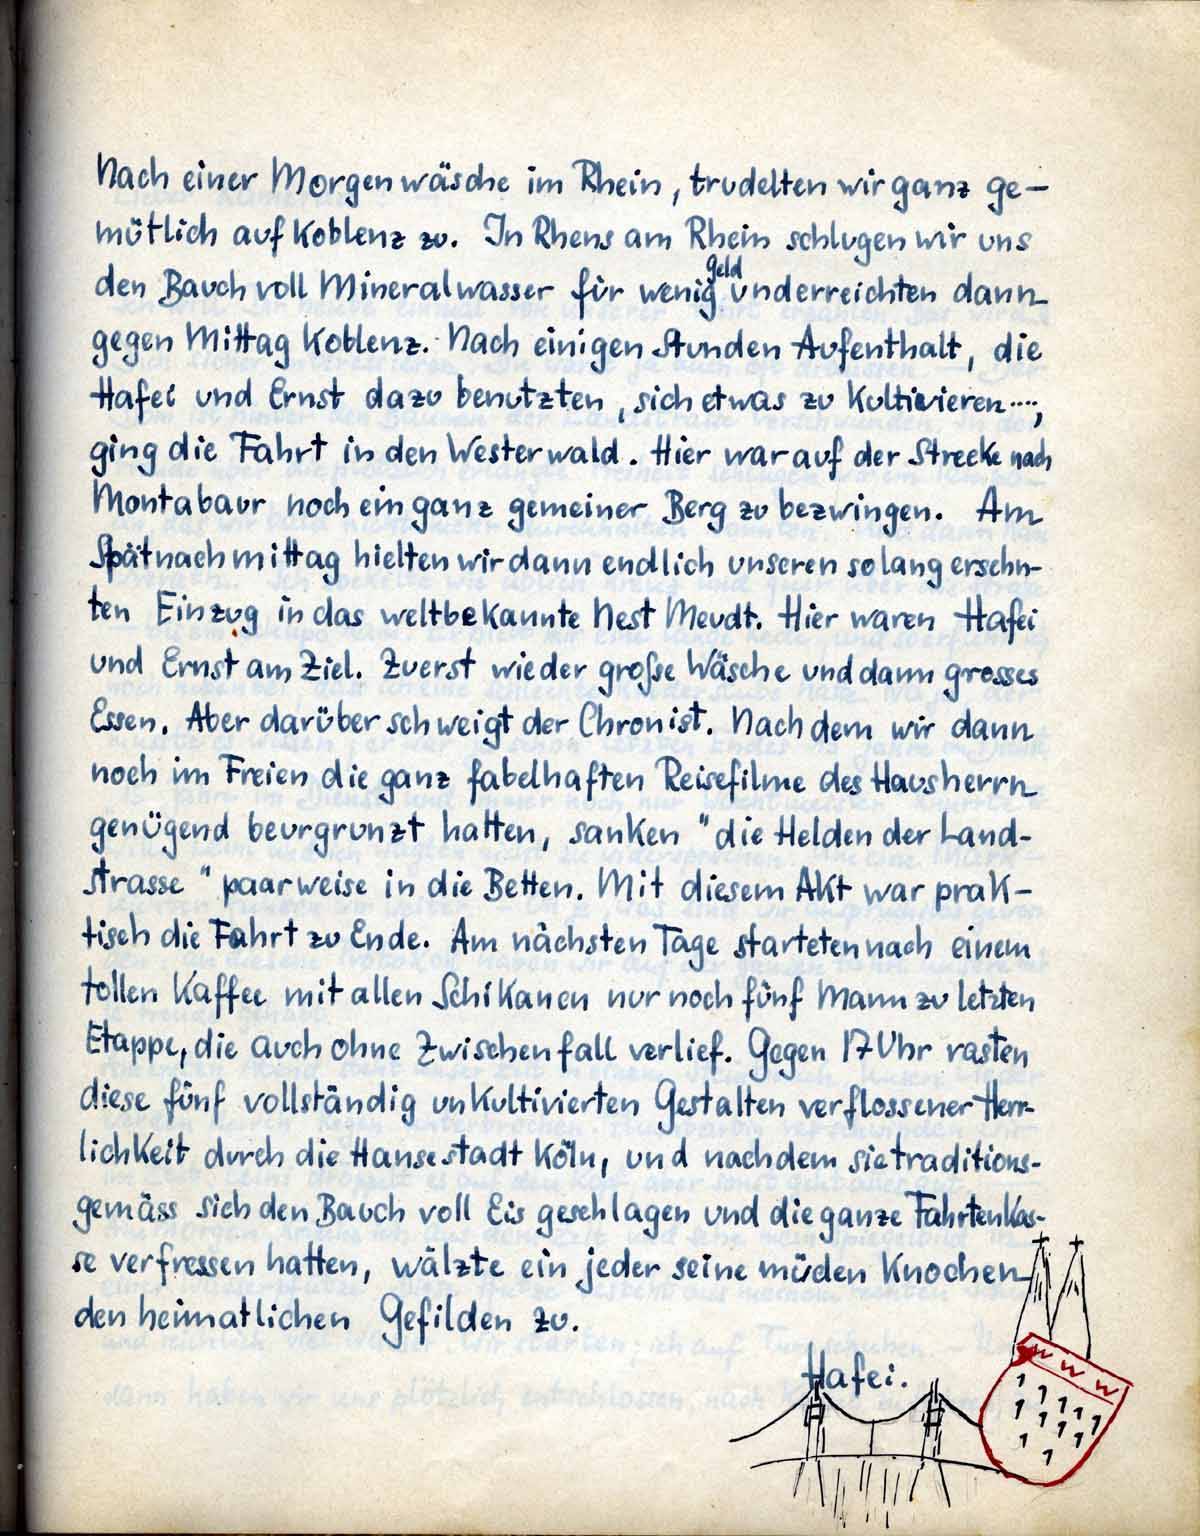 Nach einer Morgenwäsche im Rhein, trudelten wir ganz ge-
mütlich auf Koblenz zu. In Rhens am Rhein schlugen wir uns
den Bauch voll Mineralwasser für wenig geld und erreichten dann
gegen Mittag Koblenz. Nach einigen Stunden Aufenthalt, die
Hafei und Ernst dazu benutzten, sich etwas zu Kultivieren....,
ging die Fahrt in den Westerwald. Hier war auf der Strecke nach
Montabaur noch ein ganz gemeiner Berg zu bezwingen. Am
Spätnachmittag hielten wir dann endlich unseren so lang ersehn-
ten Einzug in das weltbekannte Nest Meudt. Hier waren Hafei
und Ernst am Ziel. Zuerst wieder große Wäsche und dann grosses
Essen. Aber darüber schweigt der Chronist. Nachdem wir dann
noch im Freien die ganz fabelhaften Reisefilme des Hausherrn
genügend beurgrunzt hatten, sanken "die Helden der Land-
strasse" paarweise in die Betten. Mit diesem Akt war prak-
tisch die Fahrt zu Ende. Am nächsten Tage starteten nach einem
tollen Kaffee mit allen Schikanen nur noch fünf Mann zu letzten
Etappe, die auch ohne Zwischenfall verlief. Gegen 17 Uhr rasten
diese fünf vollständig unkultivierten Gestalten verflossener Herr-
lichkeit durch die Hansestadt Köln, und nachdem sie traditions-
gemäss sich den Bauch voll Eis geschlagen und die ganze Fahrtenkas-
se verfressen hatten, wälzte ein jeder seine müden Knochen
den heimatlichen Gefilden zu.
Hafei.